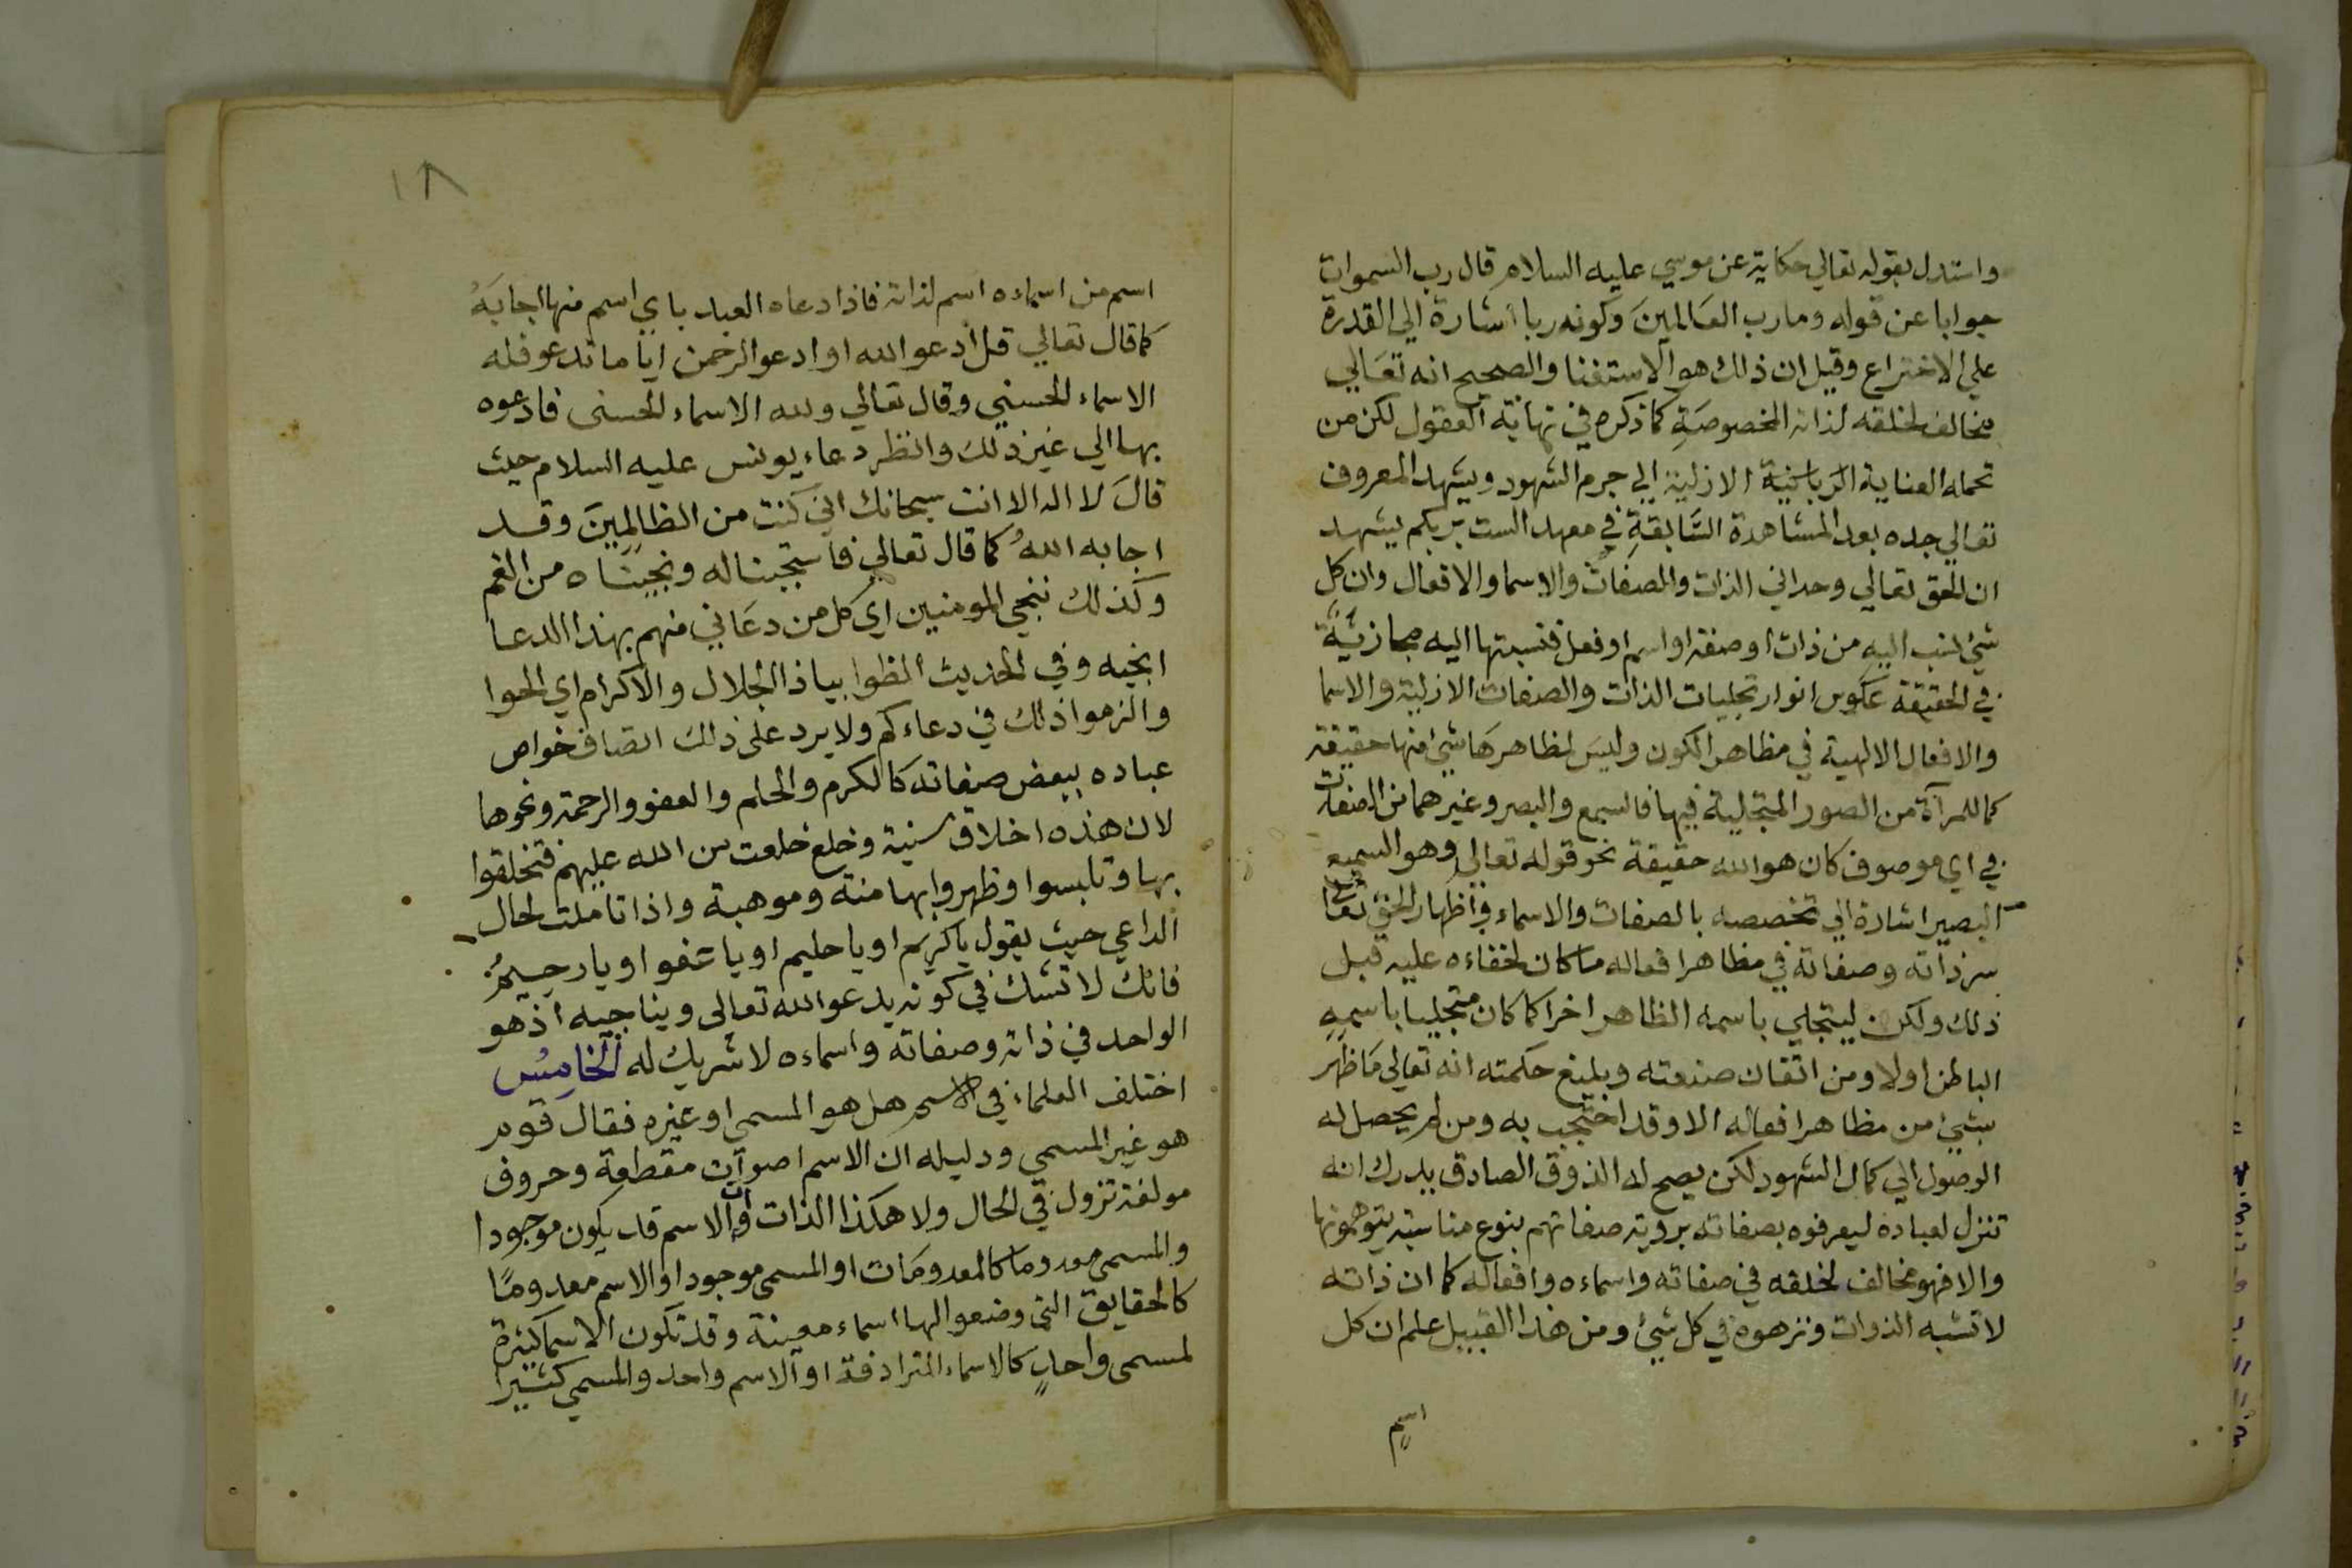 واستدل بقوله تعالي حكاية عن موسي عليه السلام قال رب السموات
جوابا عن قوله وما رب العَالمينَ وكونه ربا اشارة الي القدرة
علي الاختراع وقيل ان ذلك هو الاستغنا والصحيح انه تعَالي
مخالف لخلقه لذاته المخصوصَةِ كما ذكره في نهاية العقول لكن من
تحمله العناية الرَبانية الازلية الي حرم الشهود ويشهد المعروف
تعالي جده بعد المشاهدة السَّابقةِ في معهد الست بربكم يشهد
ان الحق تعالي وحداني الذات والصفات والاسما والافعال وان كل
شئ نسب اليه من ذات او صفة او اسم او فعل فنسبتها اليه مجازيَّة
في الحقيقة عكوس انوار تجليات الذات والصفات الازلية والاسما
والافعال الالهية في مظاهر الكون وليسَ لمظاهرهَا شئ منها حقيقة
كما للمرآة من الصور المتجلية فيها فالسمع والبصر وغيرهما من الصفات
في اي موصوف كان هو الله حقيقة نحو قوله تعالي وهو السميع
البصير اشارة الي تخصصه بالصفات والاسماء واظهار الحق تعالي
سر ذاته وصفاته في مظاهر افعاله ما كان لخفاءه عليه قبل
ذلك ولكن ليتجلي باسمه الظاهر اخرا كما كان متجليا باسمهِ
الباطن اولا ومن اتقان صنعته وبليغ حكمته انه تعالي مَا ظهر
بشئ من مظاهر افعاله الا وقد احتجب به ومن لم يحصل له
الوصول الي كمال الشهود لكن يصح له الذوق الصادق يدرك انه
تنزل لعباده ليعرفوه بصفاته بروية صفاتهم بنوع مناسبة يتوهمونها
والا فهو مخالف لخلقه في صفاته واسماءه وافعاله كما ان ذاته
لا تشبه الذوات ونزهوه في كل شئ ومن هذا القبيل علم ان كل
اسم
١٨
اسم من اسماءه اسم لذاته فاذا دعاه العبد باي اسم منها اجابَهُ
كما قال تعالي قل ادعوا الله او ادعوا الرحمن ايا ما تدعو فله
الاسماء الحسني وقال تعالي ولله الاسماء الحسنى فادعوه
بها الي غير ذلك وانظر دعاء يونس عليه السلام حيث
قالَ لا اله الا انت سبحانك اني كنت من الظالمِينَ وقد
اجابه اللهُ كما قال تعالي فاستجبنا له ونجيناه من الغم
وكذلك ننجي المومنين اي كل من دعَاني منهم بهذا الدعا
انجيه وفي الحديث الظوا بياذا الجلال والاكرام اي الحوا
والزموا ذلك في دعاءكم ولا يرد على ذلك اتصاف خواص
عباده ببعض صفاته كالكرم والحلم والعفو والرحمة ونحوها
لان هذه اخلاق سنية وخلع خلعت من الله عليهم فتخلقوا
بها وتلبسوا وظهروا بها منة وموهبة واذا تاملت لحال
الداعي حيث يقول يا كريم او يا حليم او يا عفو او يا رحيمُ
فانك لا تشك في كونه يدعو الله تعالى ويناجيه اذ هو
الواحد في ذاته وصفاته واسماءه لا شريك له الخامِسُ
اختلف العلماء في الاسم هل هو المسمي او غيره فقال قوم
هو غير المسمي ودليله ان الاسم اصوات مقطعة وحروف
مولفة تزول في الحال ولا هكذا الذات وان الاسم قد يكون موجودا
والمسمى معدوما كالمعدومَات او المسمى موجودا والاسم معدومًا
كالحقايق التي وضعوا لها اسماء معينة وقد تكون الاسما كثيرة
لمسمى واحدٍ كالاسماء المترادفة او الاسم واحد والمسمي كثيرا